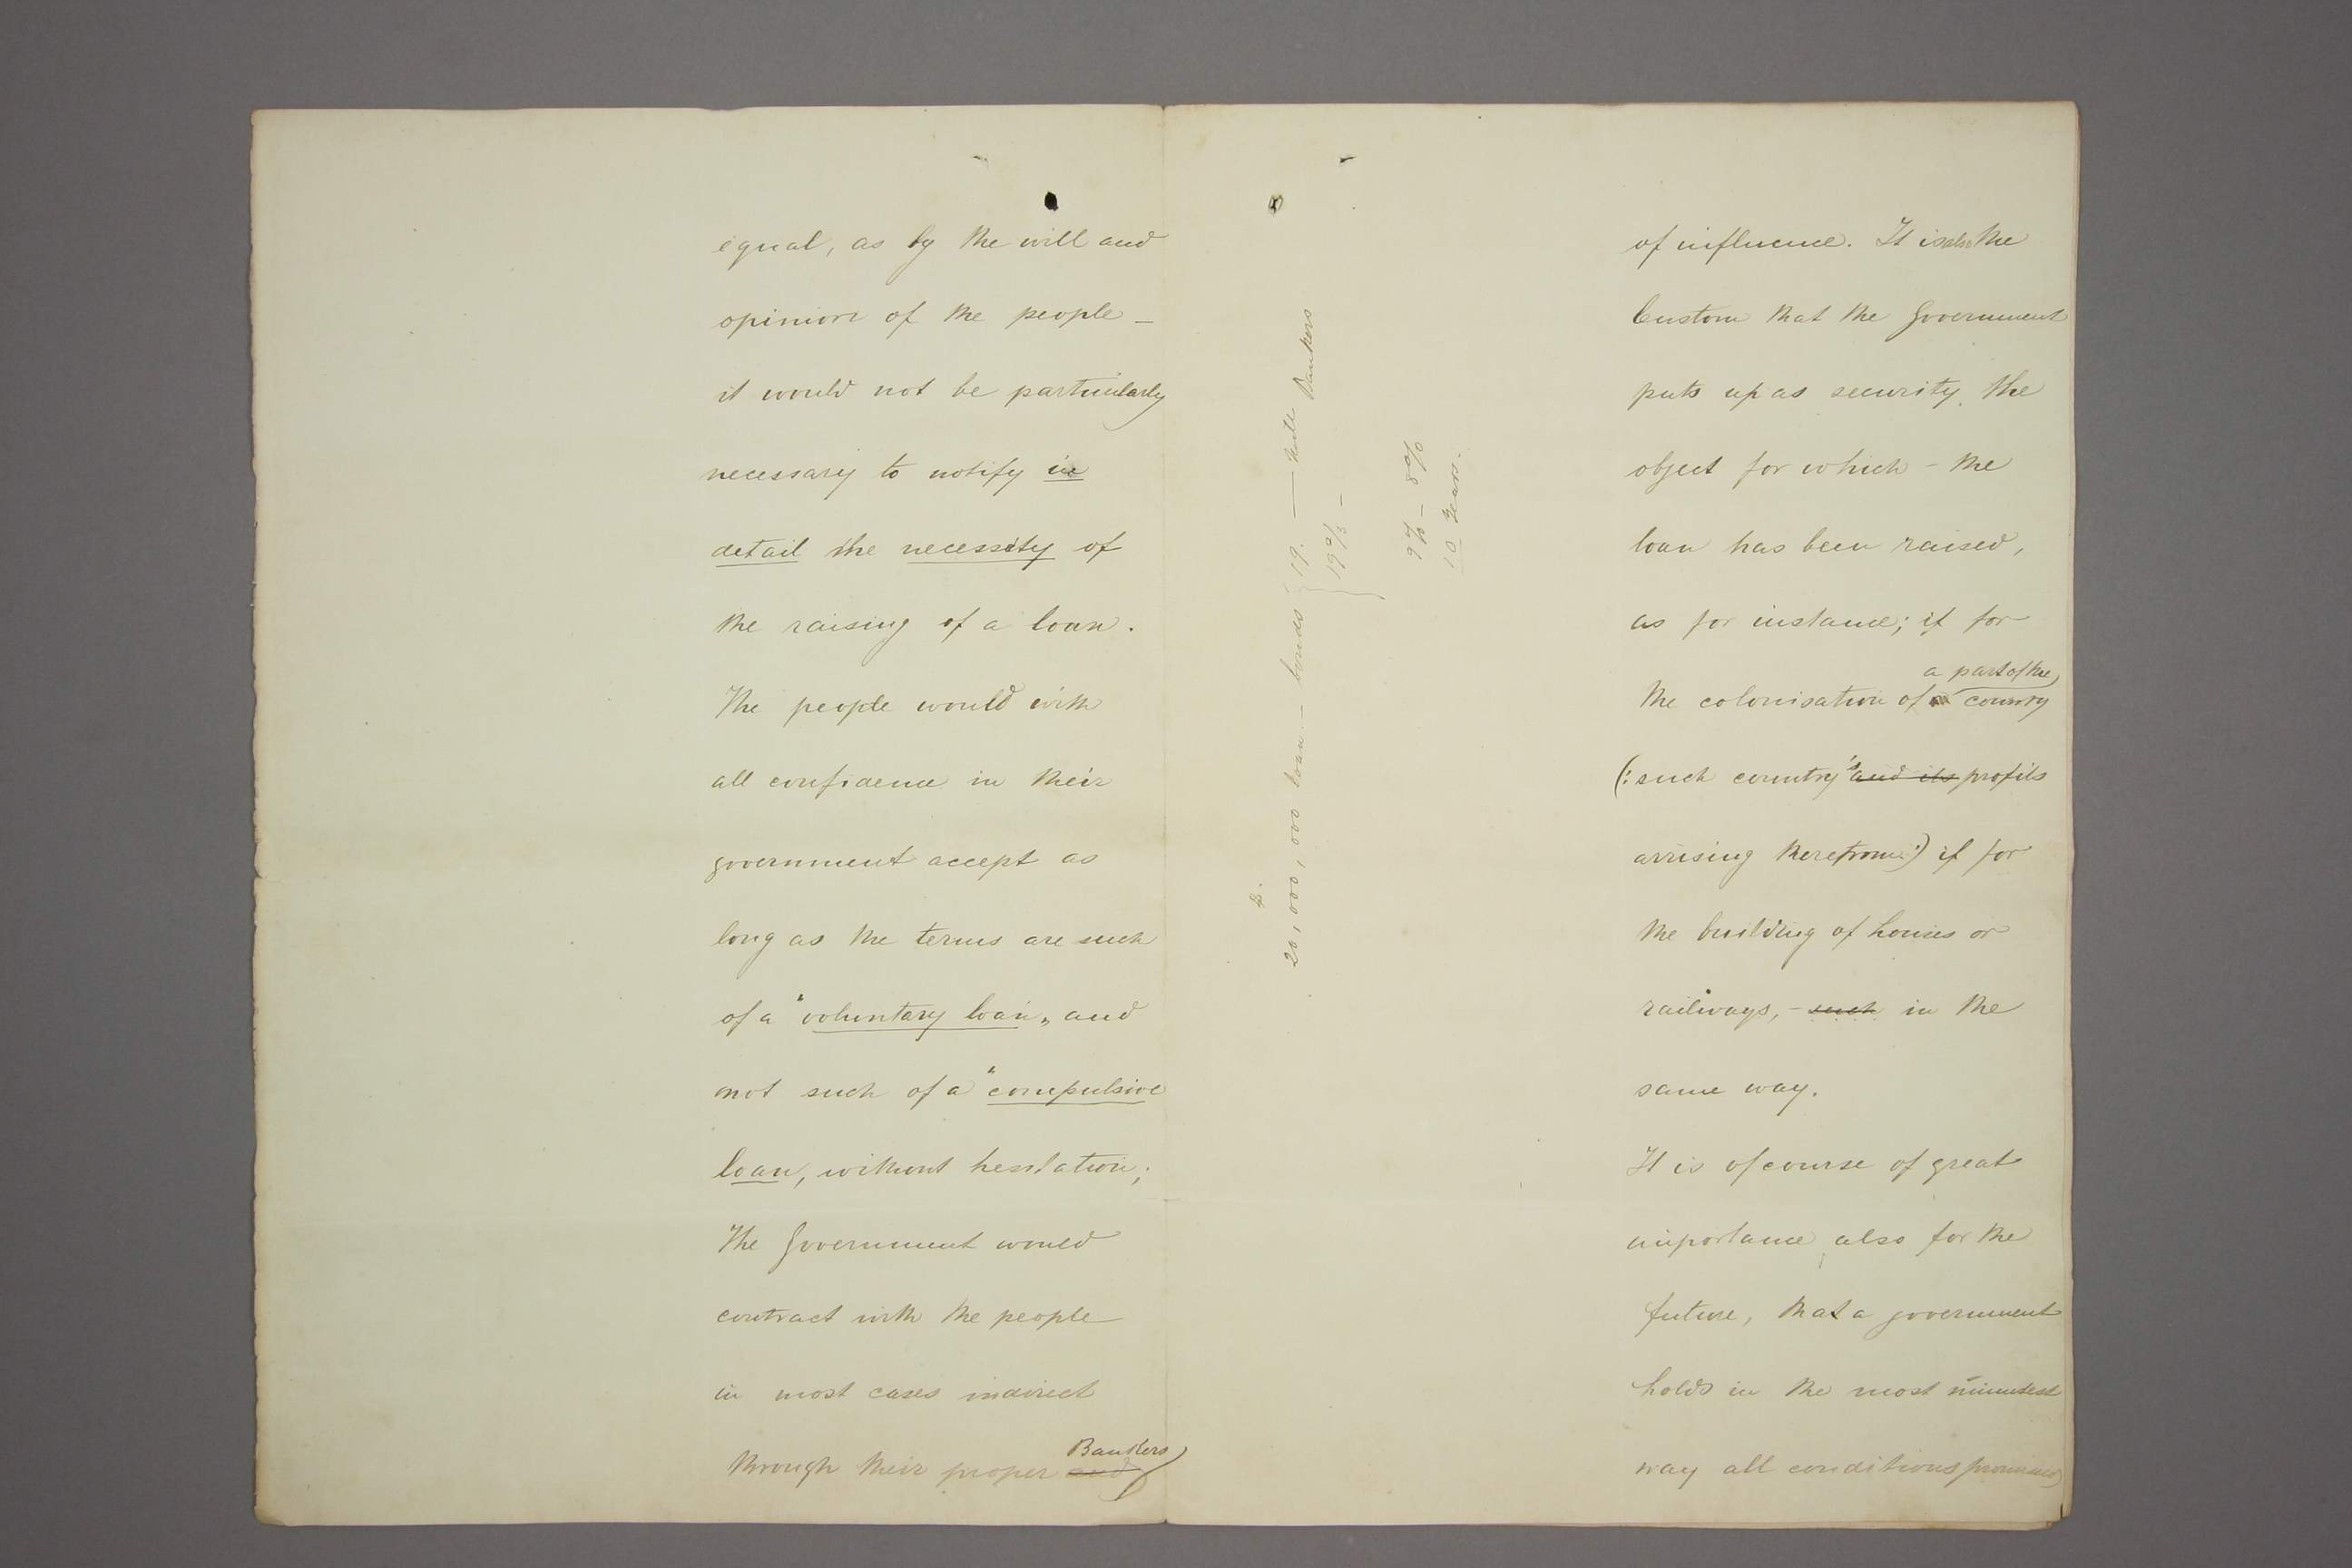 equal, as by the will and
opinion of the people –
it would not be particularly
necessary to notify in
detail the necessity of
the raising of a loan.
The people would with
all confidence in their
government accept as
long as the terms are such
of a "voluntary loan„ and
not such of a "compulsive
loan, without hesitation;
The Government would
contract with the people
in most cases indirect
Bankers
through their proper and
20,000,000 loan – bonds 19. — Bankers
19 2/3 –
9% – 8%
10 years.
of influence. It is also the
Custom that the Government
puts up as security, the
object for which – the
loan has been raised,
as for instance; if for
a part of the
the colonisation of country
(: such country's and its profits
arrising therefrom:) if for
the building of houses or
railways, – such in the
same way.
It is of course of great
importance also for the
future, that a government
holds in the most minutest
way all conditions promised